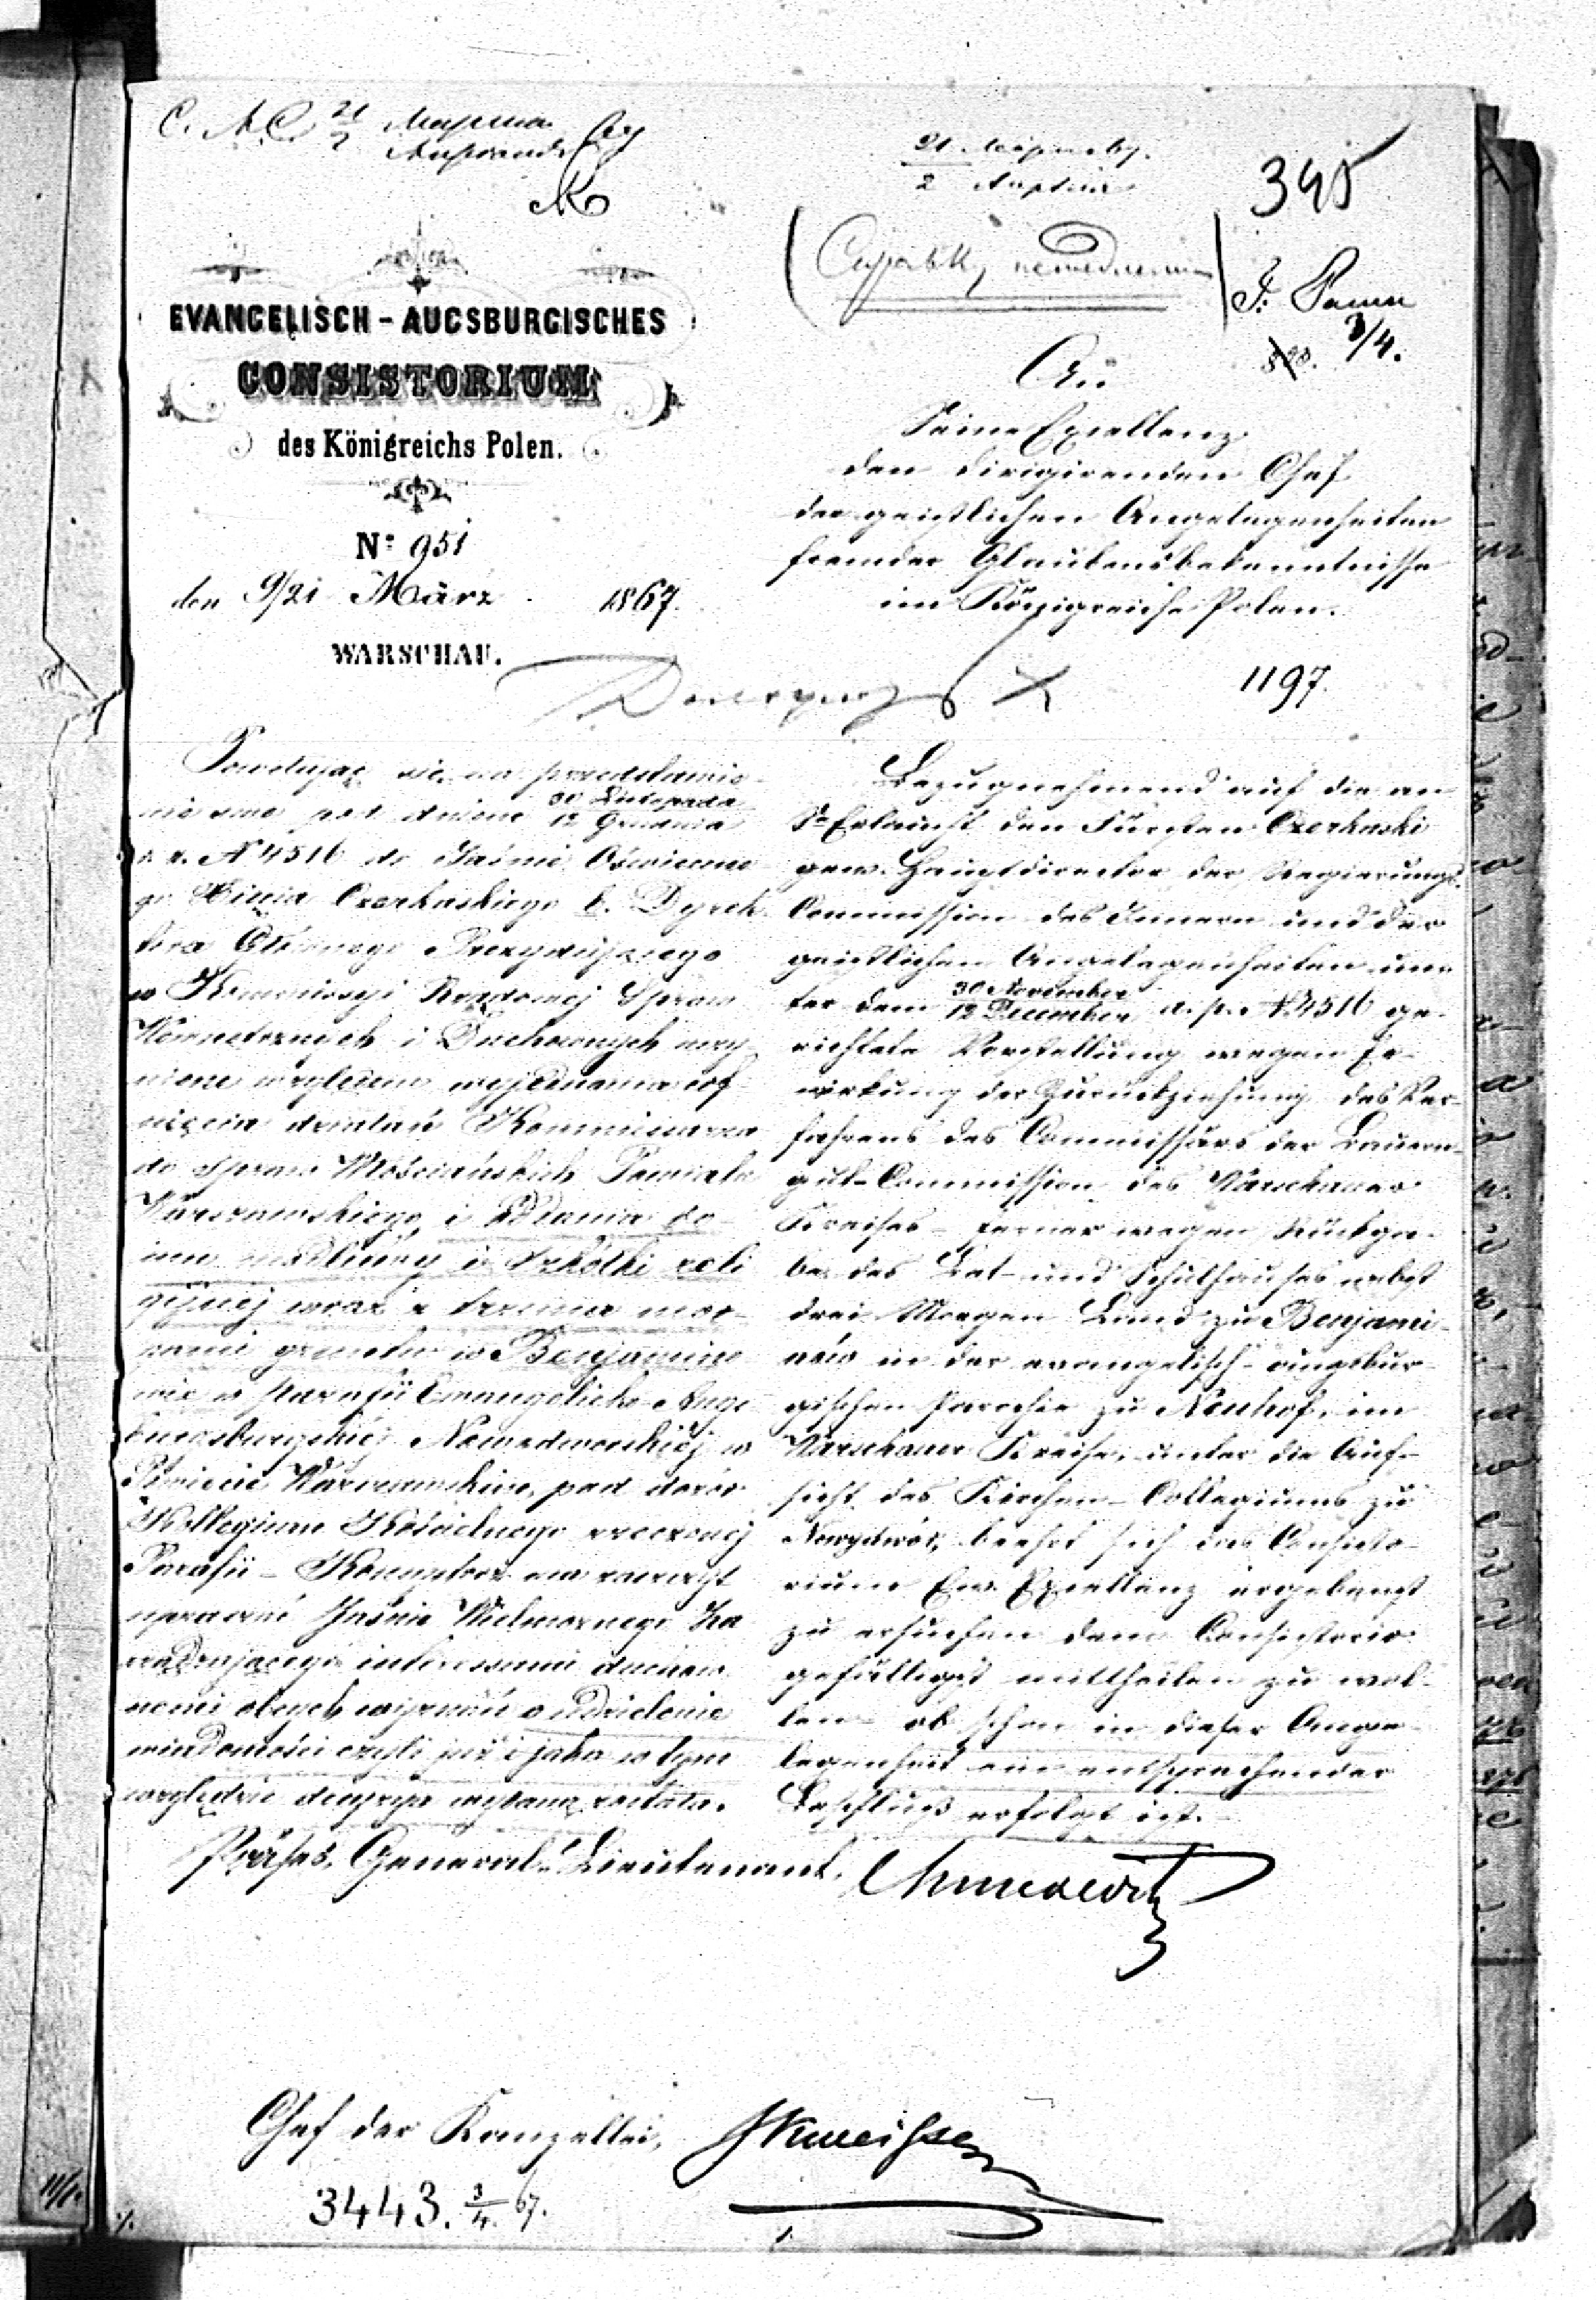 21
2
Марта
345
21 Марта 67.
2 Апреля
Справку немедленно
3/4.
EVANGELISCH - AUGSBURGISCHES
CONSISTORIUM
des Königreichs Polen.
Nº 951
den 9/21 März 1867.
WARSCHAU.
An
Seine Excellenz
den dirigirenden Chef
der geistlichen Angelegenheiten
fremder Glaubensbekenntnisse
im Königreiche Polen.
1197.
Powołując się na przedstawie-
nie swe pod dniem 30 Listopada
12 Grudnia
r. z. N 4516 do Jaśnie Oświecone-
go Xięcia Czerkaskiego b. Dyrek-
tora Głównego Prezydującego
w Kommissyi Rządowej Spraw
Wewnetrznych i Duchownych uczy-
nione względem wyjednania cof-
nięcia działań Kommissarza
do spraw Włościańskich Powiatu
Warszawskiego, i oddania do-
mu modlitwy i szkółki reli-
gijnej wraz z trzema mor-
gami gruntu w Benjamino-
wie w Parafii Ewangelicko-Augs-
burgskiéj Nowodworskiéj w
Powiecie Warszawskim, pod dozór
Kollegium Kościelnego rzeczonej
Parafii - Konsystorz ma zaszczyt
upraszać Jaśnie Wielmożnego Za-
rządzającego interesami duchow-
nemi obcych wyznań o udzielenie
wiadomości czyli już i jaka w tym
względzie decyzya wydaną została.
Bezugnehmend auf die an
Sr Erlaucht den Fürsten Czerkaski
gew. Hauptdirector der Regierungs-
Commission des Innern und der
geistlichen Angelegenheiten un-
ter dem 30 November
12 December a. p. N 4516 ge-
richtete Vorstellung wegen Er-
wirkung der Zurückziehung des Ver-
fahrens des Commissärs der Bauern-
gut-Commission des Warschauer
Kreises - ferner wegen Rückga-
be des Bet- und Schulhauses nebst
drei Morgen Land zu Benjami-
nów in der evangelisch-augsbur-
gischen Parochie zu Neuhof, im
Warschauer Kreise, unter die Auf-
sicht des Kirchen-Collegiums zu
Nowydwór, beehrt sich das Consisto-
rium Ew. Excellenz ergebenst
zu ersuchen dem Consistorio
gefälligst mittheilen zu wol-
len - ob schon in dieser Ange-
legenheit ein entsprechender
Beschluß erfolgt ist.
Präses, General-Lieutenant,
Chef der Kanzellei,
3443. 3/4. 67.